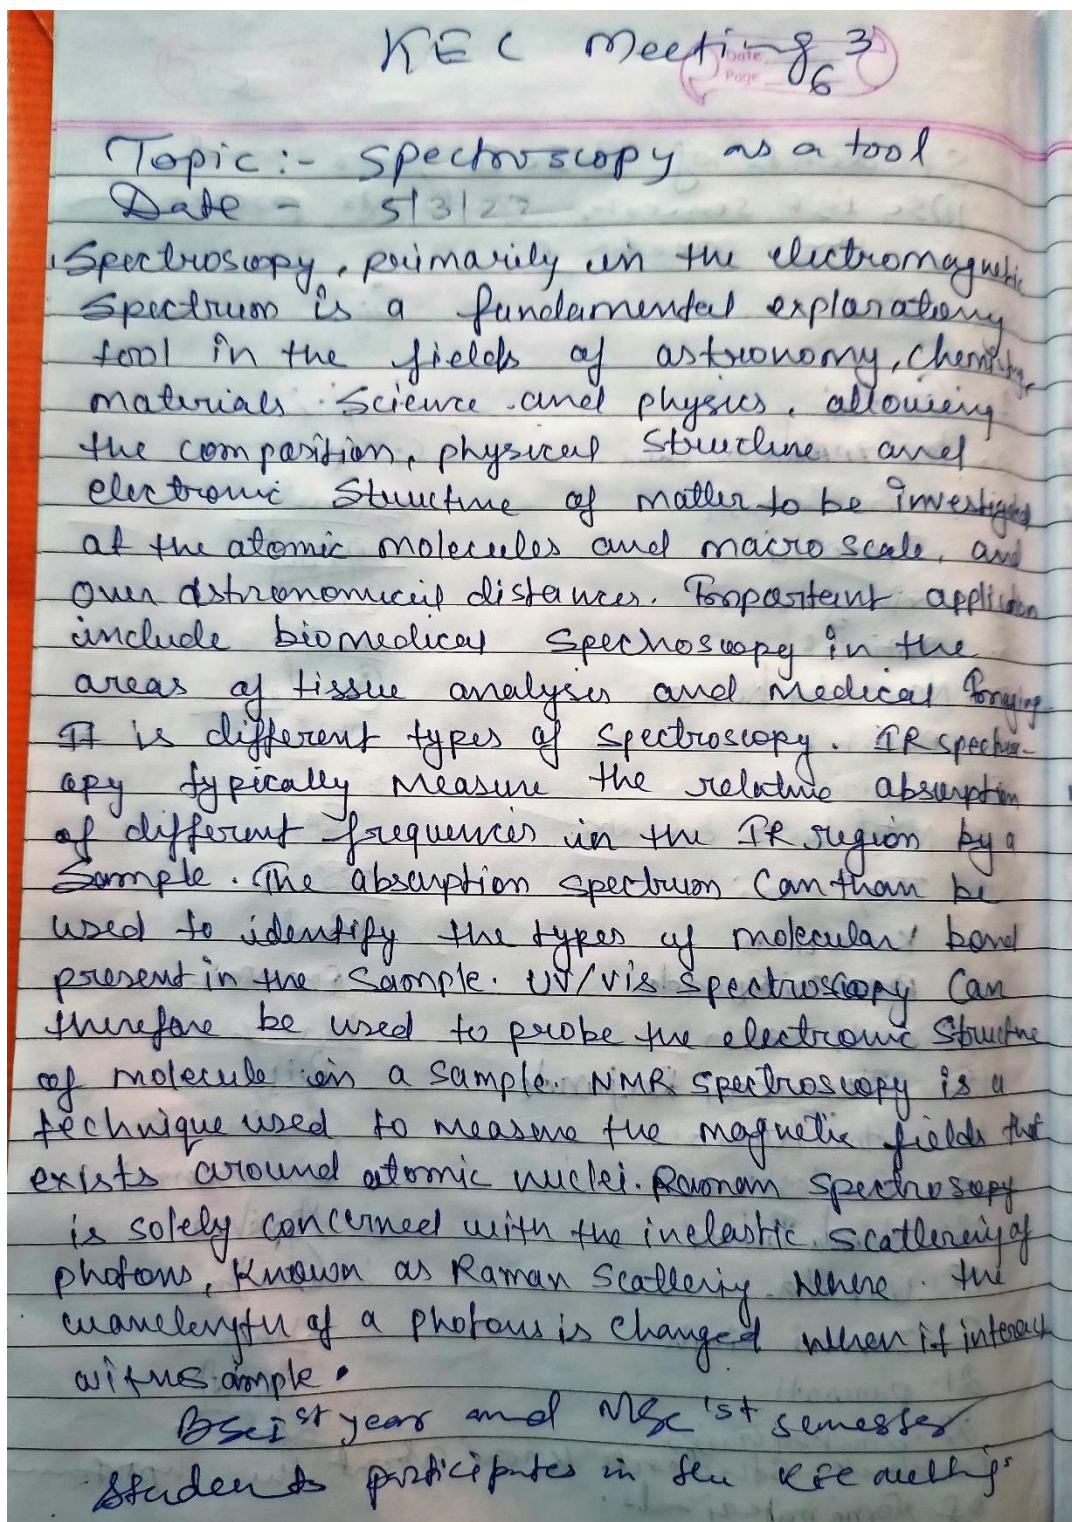 KEC Meeting 3
Date
Page 6
Topic :- Spectroscopy as a tool
Date - 5/3/22
Spectroscopy, primarily in the electromagnetic
Spectrum is a fundamental exploratory
tool in the fields of astronomy, Chemistry,
materials Science and physics, allowing
the composition, physical Structure and
electronic Structure of matter to be investigated
at the atomic molecules and macro scale, and
over astronomical distances. Important application
include biomedical Spectroscopy in the
areas of tissue analysis and medical Imaging
It is different types of Spectroscopy. IR spectros-
opy typically Measure the relative absorption
of different frequencies in the IR region by a
Sample. The absorption spectrum Can than be
used to identify the types of molecular bond
present in the Sample. UV/Vis Spectroscopy Can
therefore be used to probe the electronic Structure
of molecule in a Sample. NMR Spectroscopy is a
technique used to measure the magnetic fields that
exists around atomic nuclei. Raman Spectroscopy
is solely Concerned with the inelastic Scattering of
photons, Known as Raman Scattering Where the
wavelength of a photons is Changed when it interact
with sample.
BSc Ist year and MSc Ist semester
Students participates in the KEC meetings